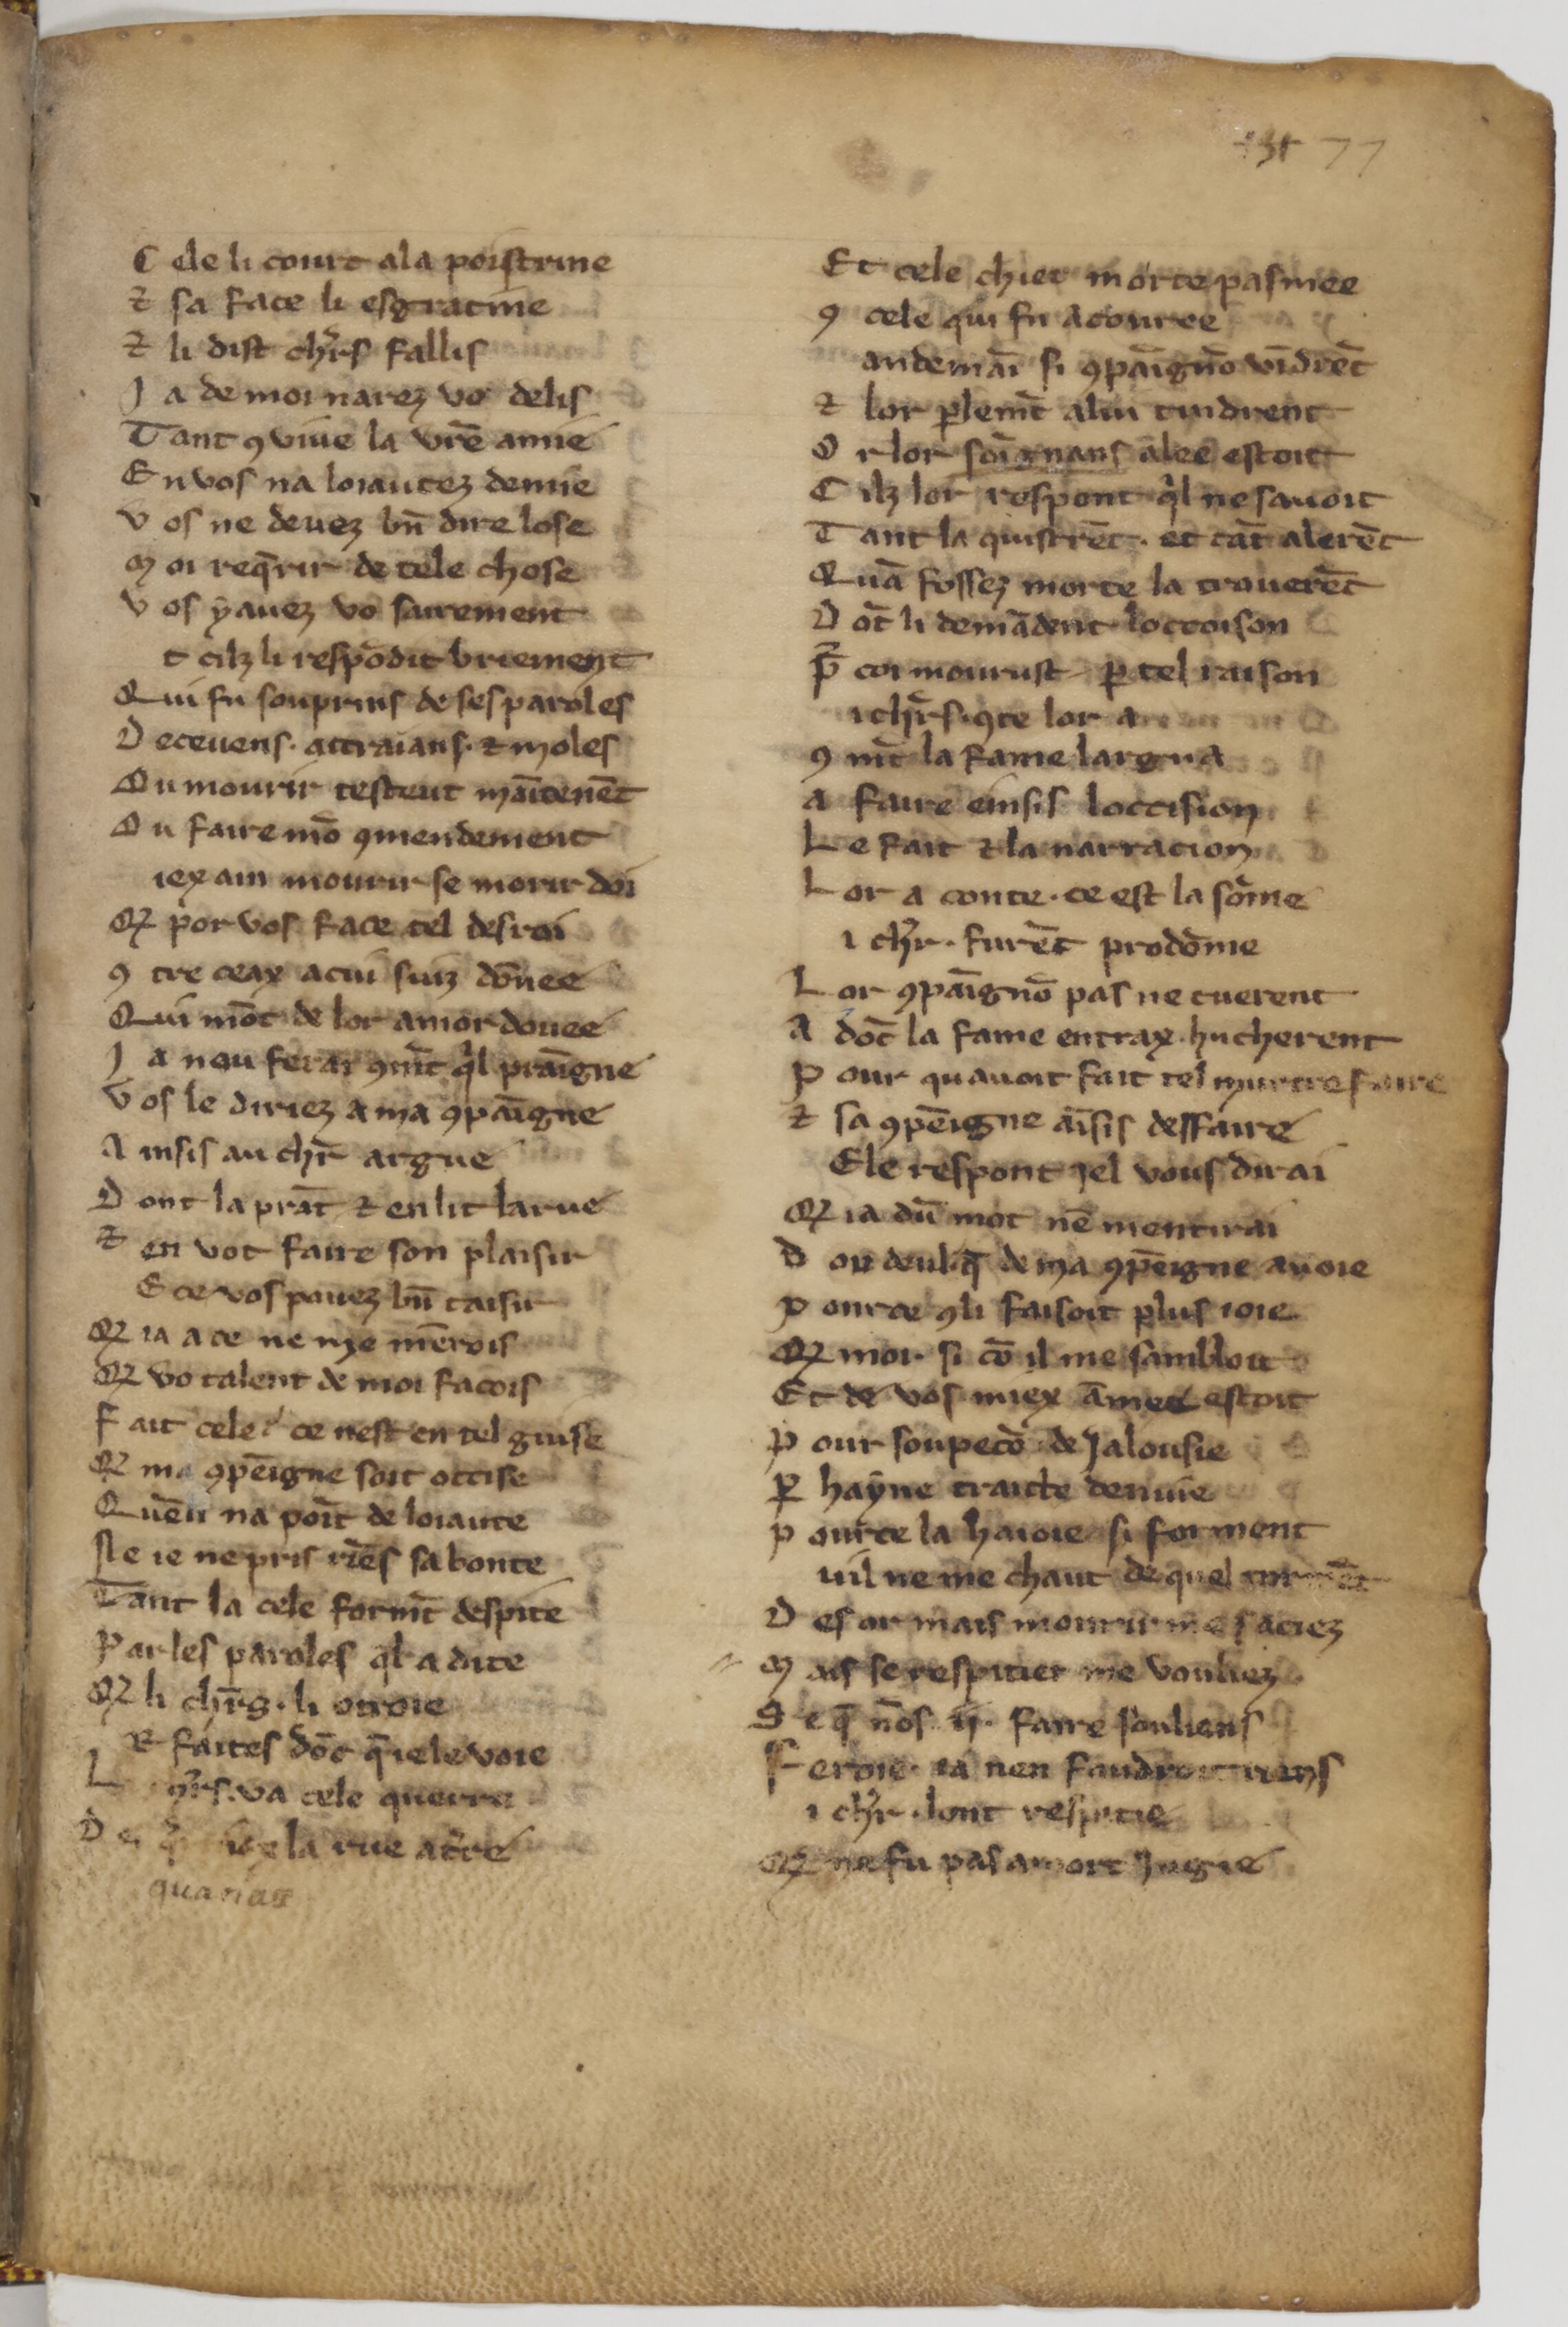 77
Cele li court a la poistrine
⁊ sa face li esgratine
⁊ li dist chrs fallis
Ja de moi narez vo delis
Tant ꝯ viue la vrē amie
En vos na loiautez demie
Vos ne deuez bn̄ dire lose
Moi reqrir de tele chose
Vos ẏ auez vo sairement
t cilz li respōdit briement
Qui fu souprins de ses paroles
Deceuens. attraians. ⁊ moles
Ou mourir testeut māitenēt
Ou faire mō ꝯmendement
iex ain mourir se morir doi
Qꝫ por vos face tel desroi
ꝯtre ceax a cui suiz dōnee
Qui mōt de lor amor douee
Ja nou ferai ꝯmt̄ ql praīgne
Vos le diriez a ma ꝯpaīgne
Ainsis au chr̄ argue
Dont la prāt ⁊ en lit larue
⁊ en vot faire son plaisir
E ce vos pouez bn̄ taisir
Qꝫ ia a ce ne me mērois
Qꝫ vo talent de moi facois
Fait cele ce nest en tel guise
Qꝫ ma ꝯpēigne soit occise
Quēli na poīt de loiaute
Ne ie ne pris riēs sa bonte
Tant la cele formt̄ despite
Par les paroles ql a dite
Qꝫ li chr̄s. li otroie
R faites dōc q̄ ie le voie
va cele querre
la rue a tr̄re
Et cele chiet morte pasmee
ꝯ cele qui fu acouree
andemāi si ꝯpaīgnō vīdrēt
⁊ lor ꝑlemt̄ a lui tindrent
Or lor soīgnans alee estoit
Cilz lor respont ql ne sauoit
Tant la quistrēt. et tāt alerēt
Quā fossez morte la trouerēt
Dōt li demādent loccoison
pr̄ coi mourust ꝑ tel raison
i chr̄s. ꝯte lor a
ꝯmt̄ la fame largua
A faire einsis loccision
Le fait ⁊ la narracion
Lor a conte. ce est la sōme
i chr̄. furēt prodōme
Lor ꝯpaīgnō pas ne tuerent
A dōc la fame entrax hucherent
Pour quauoit fait tel murtre faire
⁊ sa ꝯpēigne aīsis deffaire
Ele respont jel vous dirai
Qꝫ ia dū mot nē mentirai
Dou deul q̄ de ma ꝯpēigne auoie
Pource ꝯ li faisoit plus ioie
Qꝫ moi. si cō il me sambloit
Et de vos miex āmee estoit
Pour soupecō de Jalousie
ꝑ haẏne traicte denuie
Pource la haioie si forment
uil ne me chaut de quel
Des or mais mourir me faciez
Mais se respitier me vouliez
Se q̄ nōs ij. faire souliens
Feroie. ia nen faudroit riens
i chr̄. lont respitie
Qꝫ ne fu pas a mort Jugie